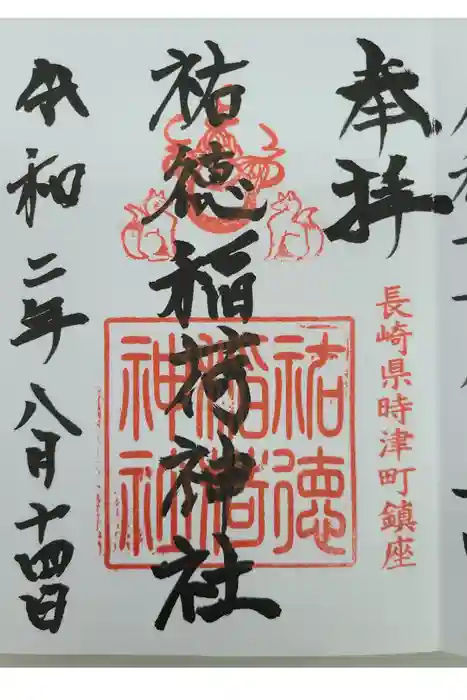 奉拝
長崎県時津町鎮座
祐徳稲荷神社
祐徳
稲荷
神社
令和二年八月十四日